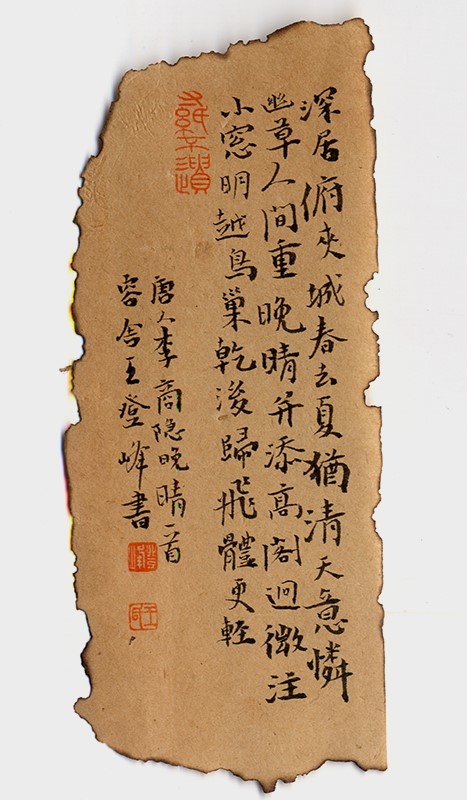 深居俯夾城春去夏猶清天意憐
幽草人间重晚晴并添高阁迥微注
小窓明越鳥巢乾後歸飛體更軽
唐人李商隐晚晴一首
容舍王登峰書